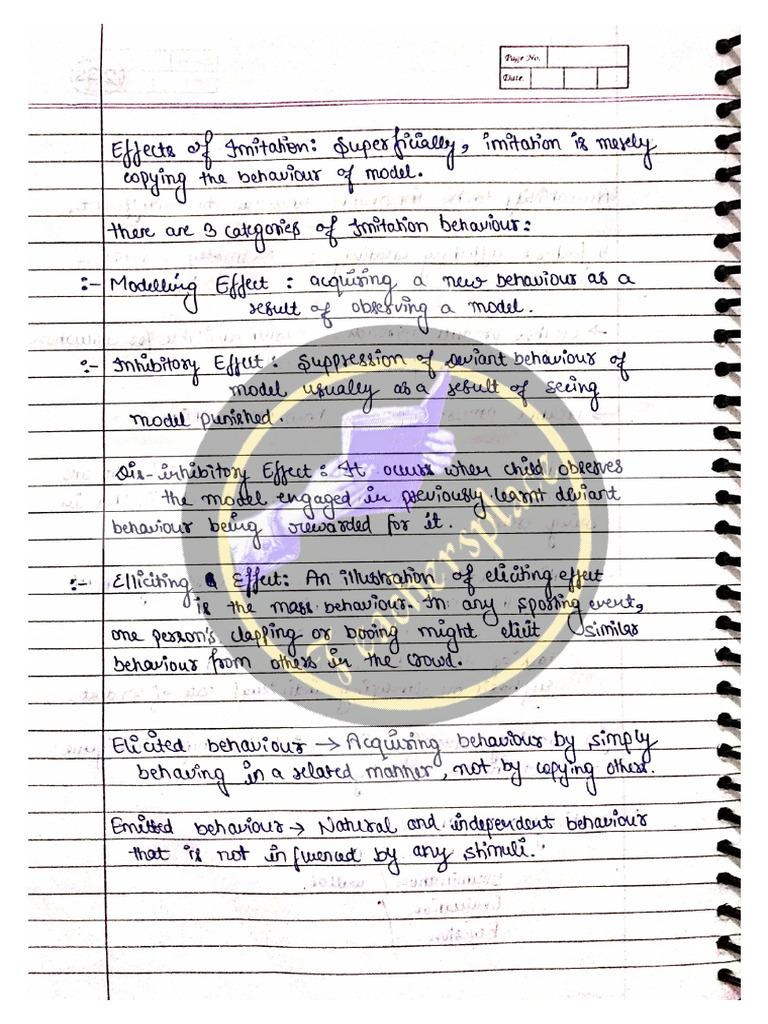 Page No.
Date.
Effects of Imitation: Superficially, imitation is merely
copying the behaviour of model.
there are 3 categories of Imitation behaviour:
:- Modelling Effect : acquiring a new behaviour as a
result of observing a model.
:- Inhibitory Effect: Suppression of deviant behaviour of
model usually as a result of seeing
model punished.
Dis-inhibitory Effect: It occurs when child observes
the model engaged in previously learnt deviant
behaviour being rewarded for it.
:- Elliciting Effect: An illustration of eliciting effect
is the mass behaviour. In any sporting event,
one person's clapping or booing might elicit similar
behaviour from others in the crowd.
Elicited behaviour → Acquiring behaviour by simply
behaving in a related manner, not by copying others.
Emitted behaviour → Natural and independent behaviour
that is not influenced by any stimuli.
Teachersplace